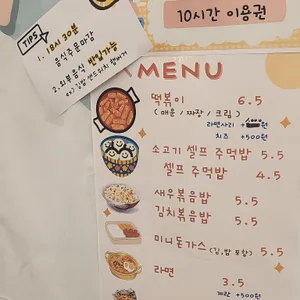 10시간 이용권
TIPS
1. 18시 30분
음식주문마감
2. 외부음식 반입가능
ex) 김밥 샌드위치 햄버거
MENU
떡볶이 6.5
(매운 / 짜장 / 크림)
라면사리 + 원
치즈 +500원
소고기 셀프 주먹밥 5.5
셀프 주먹밥 4.5
새우볶음밥 5.5
김치볶음밥 5.5
미니돈가스 (김, 밥 포함) 5.5
라면 3.5
계란 +500원